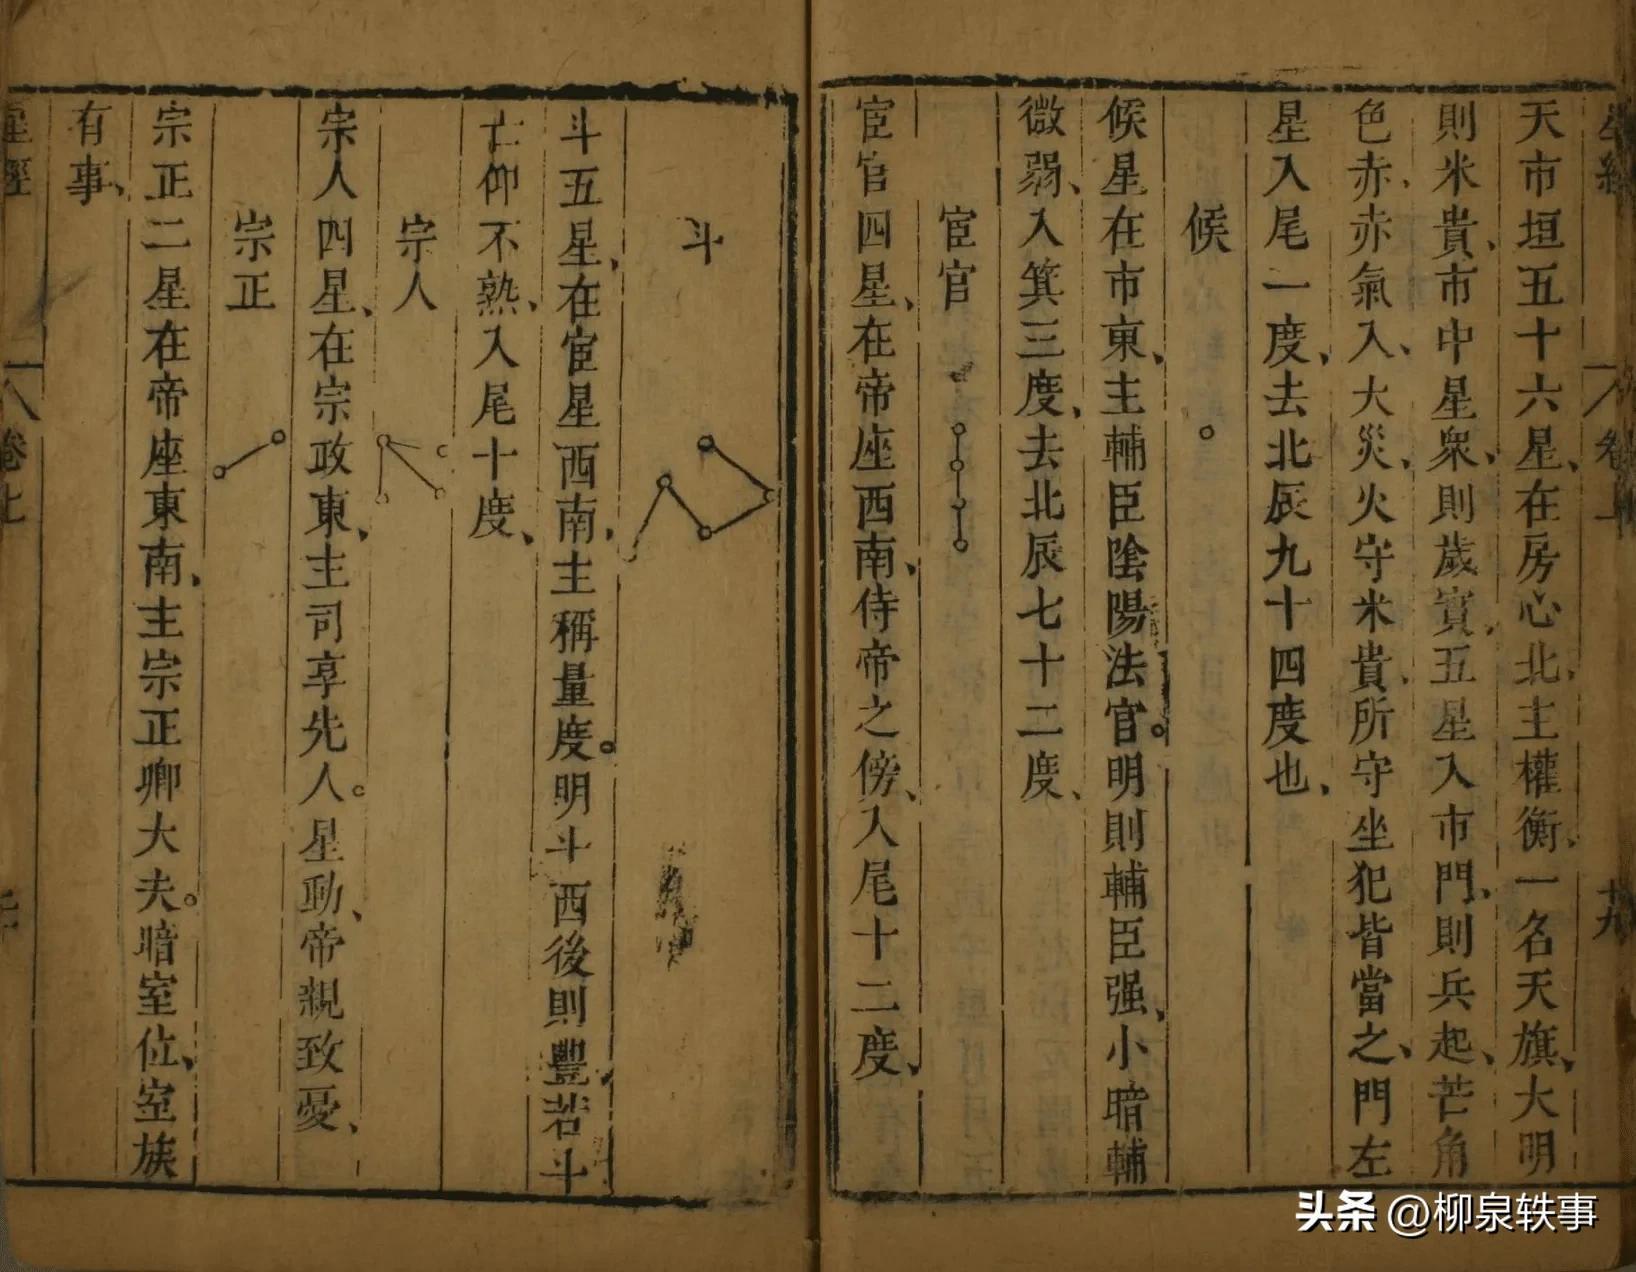 星經
卷上
十九
天市垣五十六星、在房心北、主權衡、一名天旗、大明
則米貴、市中星衆、則歲實、五星入市門、則兵起、芒角
色赤、赤氣入、大災、火守米貴、所守坐犯皆當之、門左
星入尾一度、去北辰九十四度也、
候
候星在市東、主輔臣陰陽法官。明則輔臣强、小暗輔
微弱、入箕三度、去北辰七十二度、
宦官
宦官四星、在帝座西南、侍帝之傍、入尾十二度、
斗
斗五星、在宦星西南、主稱量度。明斗西後則豐、若斗
亡仰不熟、入尾十度、
宗人
宗人四星、在宗政東、主司享先人。星動、帝親致憂、
宗正
宗正二星在帝座東南、主宗正卿大夫。暗室位、室族
有事、
星經
卷上
头条 @柳泉轶事